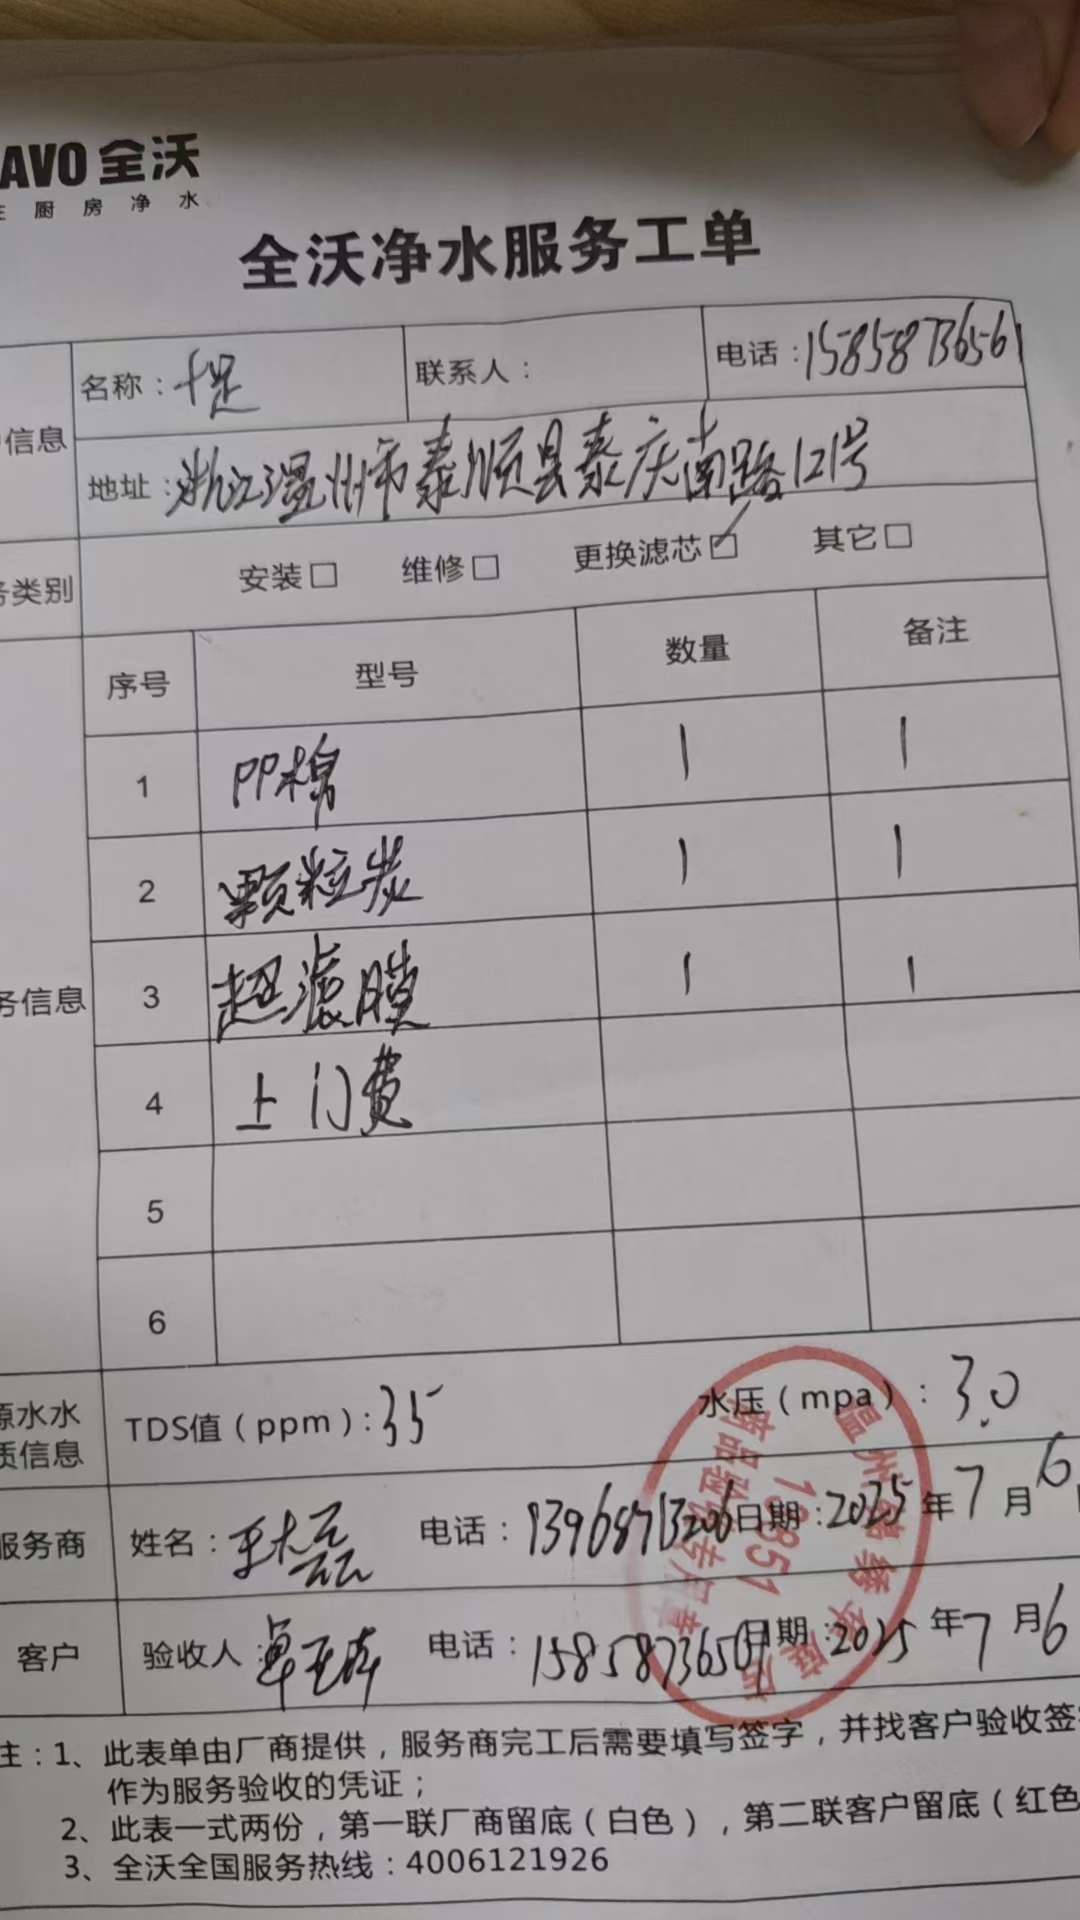 AVO 全沃
厨房净水
全沃净水服务工单
信息
名称：十足
联系人：
电话：15858736561
地址：浙江温州市泰顺县泰庆南路121号
务类别
安装□ 维修□ 更换滤芯☑ 其它□
序号 型号 数量 备注
1 PP棉 1 1
2 颗粒炭 1 1
务信息
3 超滤膜 1 1
4 上门费
5
6
源水水
质信息
TDS值（ppm）：35
水压（mpa）：3.0
服务商
姓名：王大磊
电话：13968713206
日期：2025年7月6
客户
验收人：
电话：
日期：2025年7月6
商品验收专用章
13851
注：1、此表单由厂商提供，服务商完工后需要填写签字，并找客户验收签
作为服务验收的凭证；
2、此表一式两份，第一联厂商留底（白色），第二联客户留底（红色
3、全沃全国服务热线：4006121926